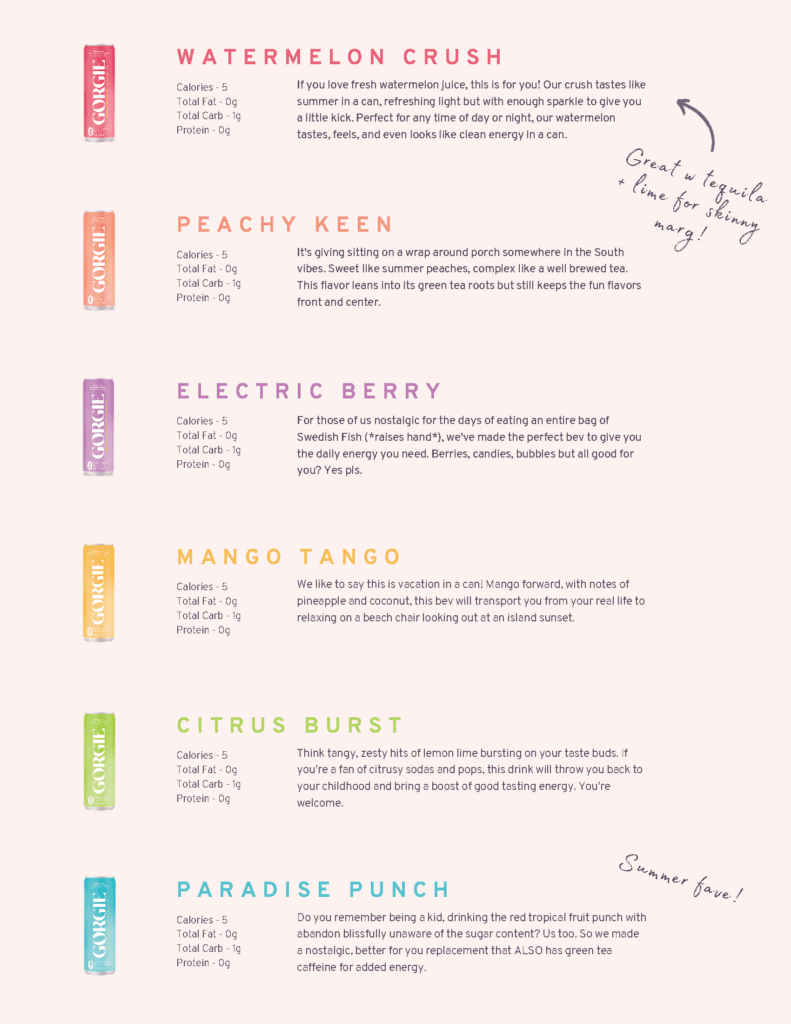 WATERMELON CRUSH
GORGIE
0
Calories - 5
Total Fat - 0g
Total Carb - 1g
Protein - 0g
If you love fresh watermelon juice, this is for you! Our crush tastes like
summer in a can, refreshing light but with enough sparkle to give you
a little kick. Perfect for any time of day or night, our watermelon
tastes, feels, and even looks like clean energy in a can.
Great w tequila
+ lime for skinny
marg!
PEACHY KEEN
GORGIE
0
Calories - 5
Total Fat - 0g
Total Carb - 1g
Protein - 0g
It's giving sitting on a wrap around porch somewhere in the South
vibes. Sweet like summer peaches, complex like a well brewed tea.
This flavor leans into its green tea roots but still keeps the fun flavors
front and center.
ELECTRIC BERRY
GORGIE
0
Calories - 5
Total Fat - 0g
Total Carb - 1g
Protein - 0g
For those of us nostalgic for the days of eating an entire bag of
Swedish Fish (*raises hand*), we've made the perfect bev to give you
the daily energy you need. Berries, candies, bubbles but all good for
you? Yes pls.
MANGO TANGO
GORGIE
0
Calories - 5
Total Fat - 0g
Total Carb - 1g
Protein - 0g
We like to say this is vacation in a can! Mango forward, with notes of
pineapple and coconut, this bev will transport you from your real life to
relaxing on a beach chair looking out at an island sunset.
CITRUS BURST
GORGIE
0
Calories - 5
Total Fat - 0g
Total Carb - 1g
Protein - 0g
Think tangy, zesty hits of lemon lime bursting on your taste buds. If
you're a fan of citrusy sodas and pops, this drink will throw you back to
your childhood and bring a boost of good tasting energy. You're
welcome.
Summer fave!
PARADISE PUNCH
GORGIE
0
Calories - 5
Total Fat - 0g
Total Carb - 1g
Protein - 0g
Do you remember being a kid, drinking the red tropical fruit punch with
abandon blissfully unaware of the sugar content? Us too. So we made
a nostalgic, better for you replacement that ALSO has green tea
caffeine for added energy.